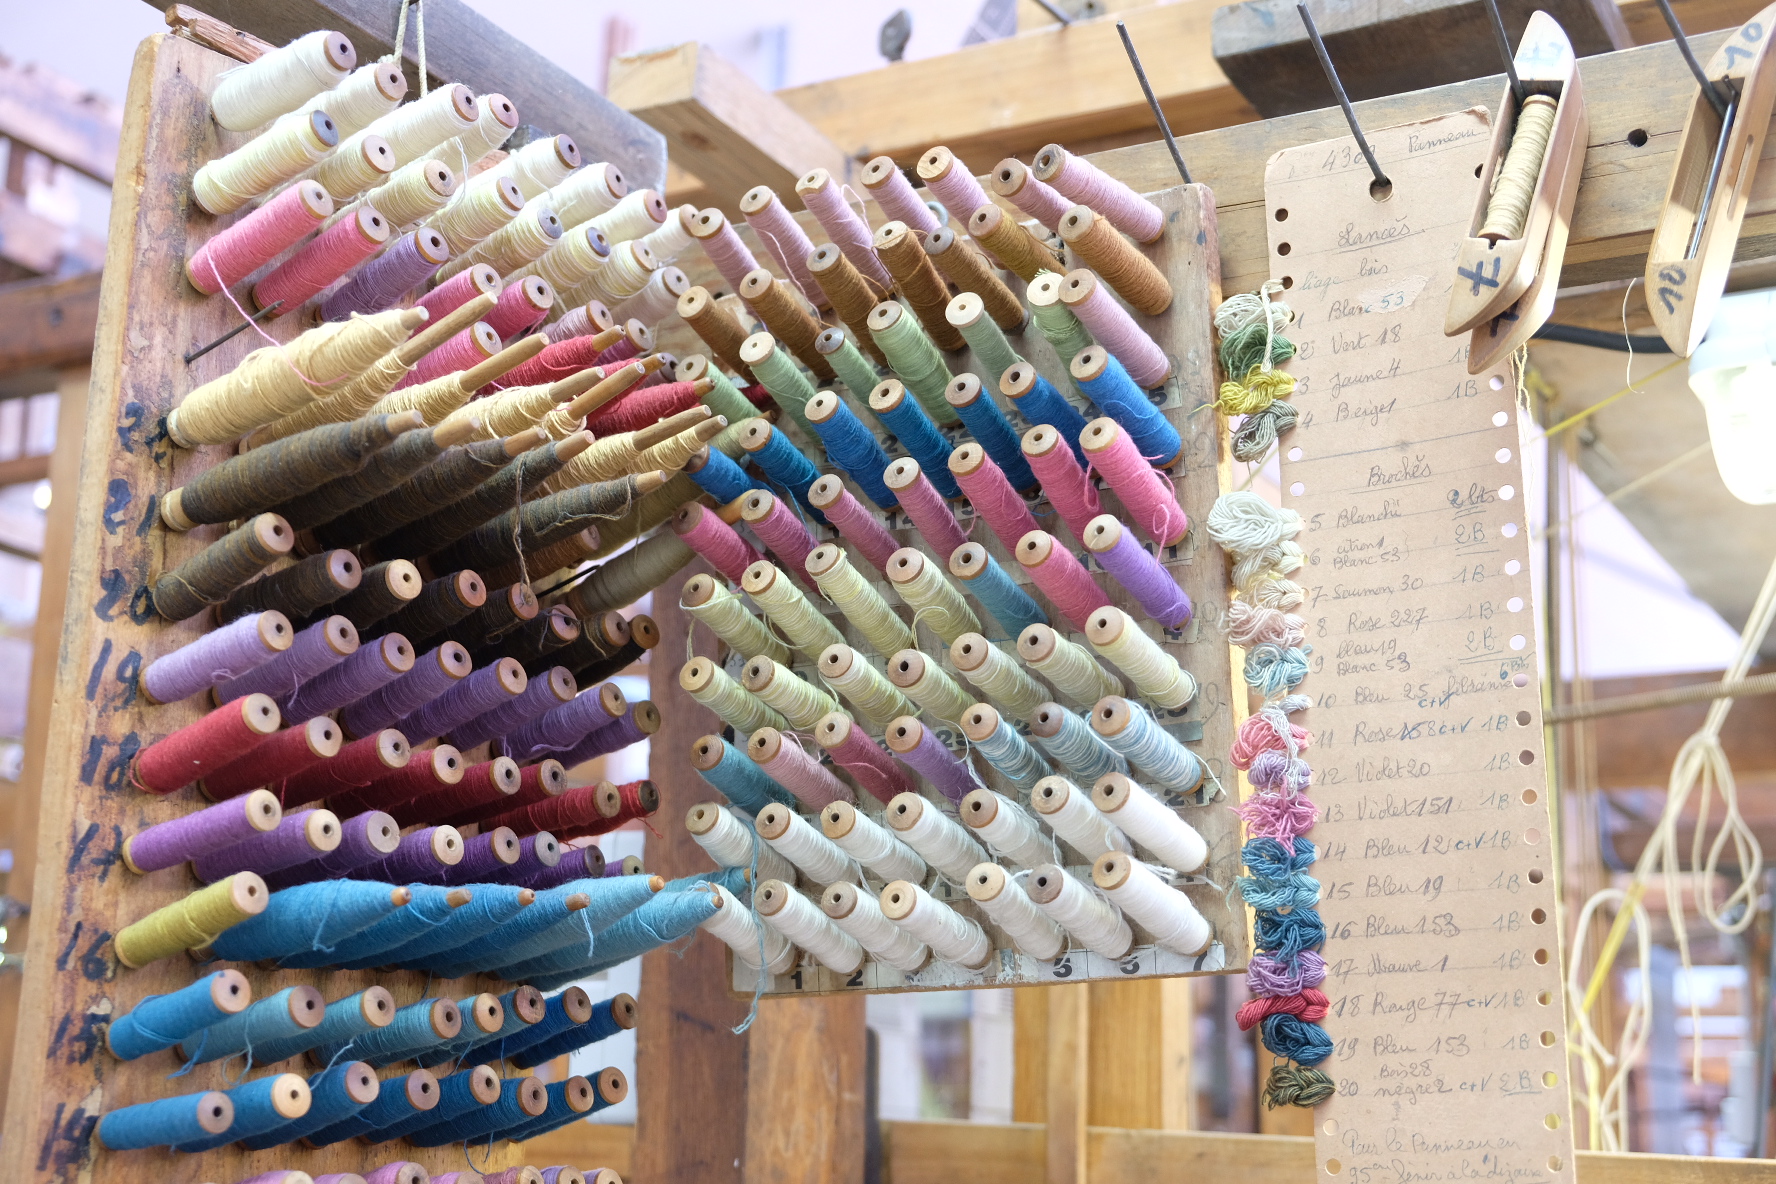 21
20
19
18
17
16
15
14
1 2 5 6 7
14
21
10
10
Panneau
Lancés
liage bois
1 Blanc 53
2 Vert 18
3 Jaune 4 1B
4 Beige 1B
Brochés
5 Blanchi 2 bts
6 citron 2B
Blanc 53
7 Saumon 30 1B
8 Rose 227 1B
9 bleu 19 2B
Blanc 53
10 Bleu 25 6 Bts
c+V
11 Rose 168 c+V 1B
12 Violet 20 1B
13 Violet 151 1B
14 Bleu 12 c+V 1B
15 Bleu 19 1B
16 Bleu 153 1B
17 Mauve 1 1B
18 Rouge 77 c+V 1B
19 Bleu 153 1B
Bois 28
20 nègre 2 c+V 2B
Pas le Panneau en
95 tenir à la dizaine